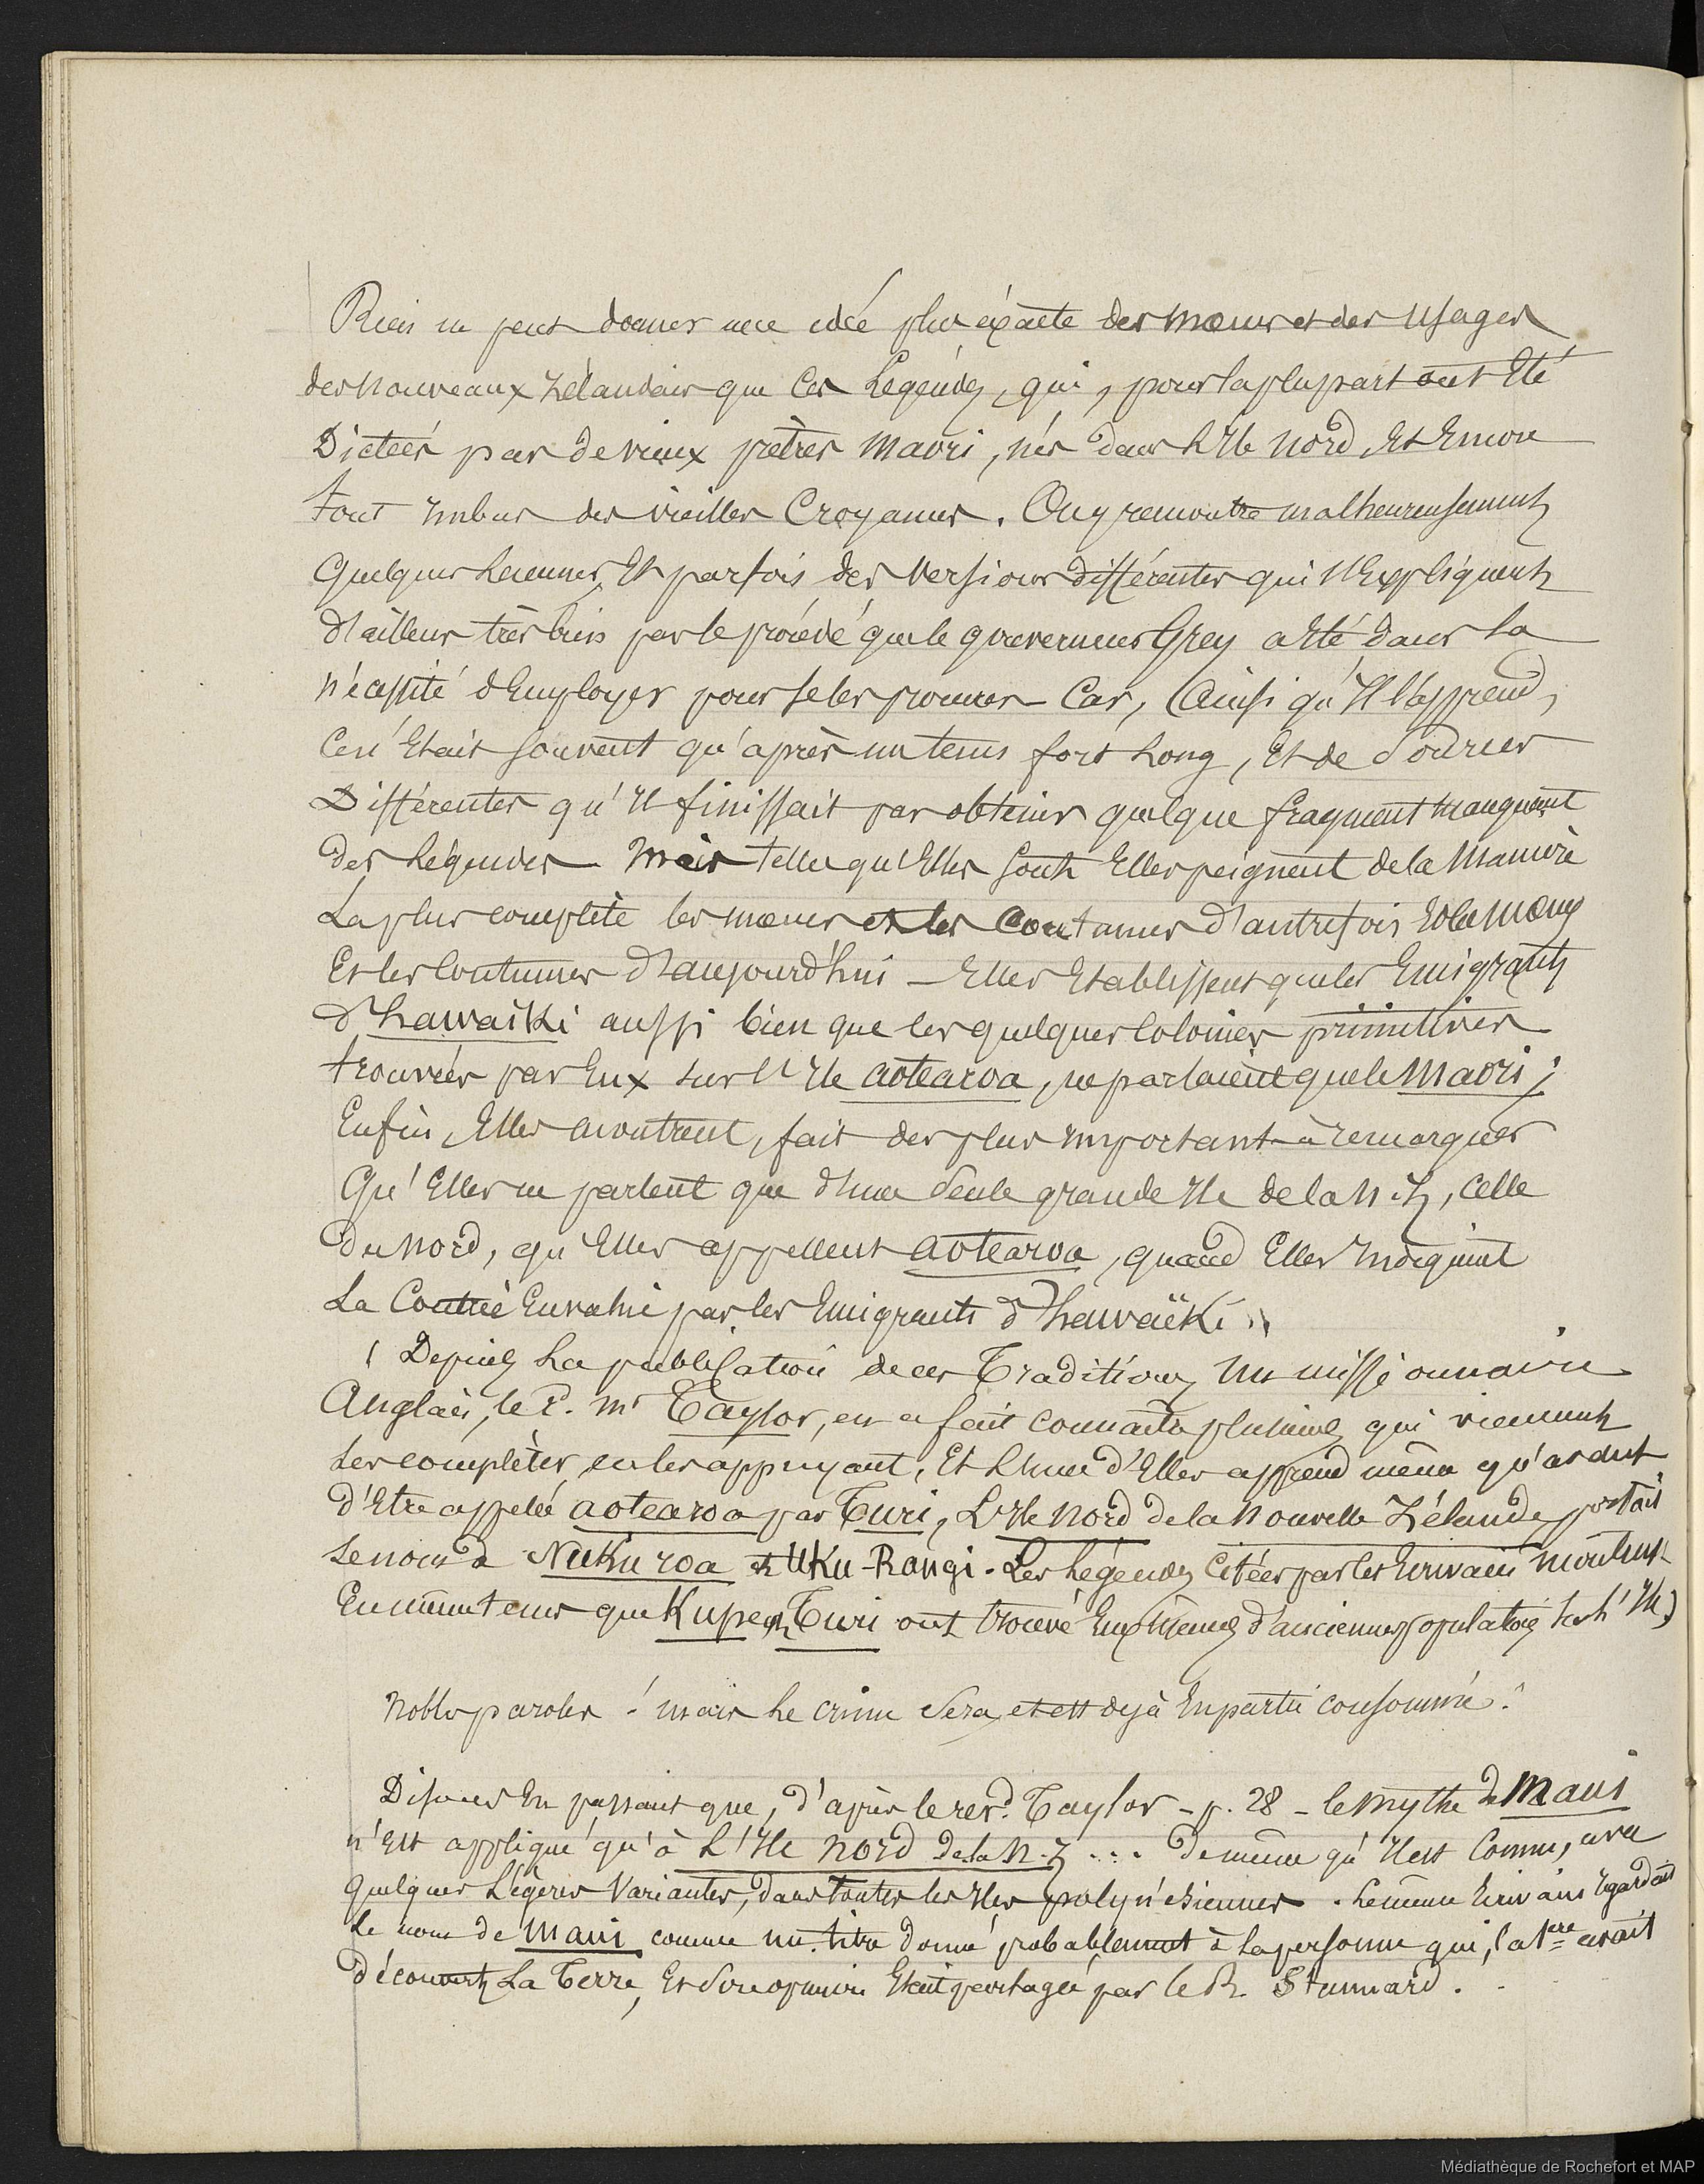 Rien ne peut donner une idée plus éxacte des moeurs et des usages
des nouveaux Zélandais que ces Légendes, qui, pour la plupart ont été
Dictées par de vieux prêtres maori, nés dans l'Ile nord et Encore
tout imbus des vieilles Croyances. On y rencontre malheureusement
Quelques lacunes, Et parfois des versions différentes qui s'Expliquent
d'ailleurs très bien par le procédé que le gouverneur Grey a été dans la
nécessité d'Employer pour se les procurer - Car, Ainsi qu'Il l'apprend,
Ce n'Etait souvent qu'après un tems fort long, Et de sources
Différentes qu'Il finissait par obtenir quelque fragment manquant
des Légendes - mais telles qu'Elles sont Elles peignent de la manière
La plus complète les moeurs et les Coutumes d'autrefois Et les moeurs
Et les Coutumes d'aujourd'hui - Elles Etablissent que les Emigrants
d'hawaïki aussi bien que les quelques Colonies primitives
trouvées par Eux sur l'Ile aotearoa, ne parlaient que le maori ;
Enfin, Elles montrent, fait des plus important à remarquer
Qu'Elles ne parlent que d'Une Seule grande Ile de la N.Z, celle
du nord, qu'Elles appellent aotearoa, quand Elles indiquent
La Contrée Envahie par les Emigrants d'hawaïki »
( Depuis La publication de ces Traditions Un missionnaire
Anglais, le R. Mr Taylor, en a fait connaître plusieurs qui viennent
Les compléter en les appuyant, Et L'une d'Elles apprend même qu'avant
d'Etre appelée aotearoa par Turi, L'Ile nord de la Nouvelle Zélande portait
Le nom de Nuku roa et Uku-Rangi. Les Légendes Citées par les Ecrivains montrent
En même tems que Kupe et Turi ont trouvé Eux mêmes d'anciennes populations sur l'Ile)
Nobles paroles ! mais Le crime Sera, et est dejà En partie consommé !
Disons En passant que, d'après le revd. Taylor - p. 28 - le mythe de Maui
n'Est appliqué qu'à L'Ile Nord de la N.Z ... de même qu'Il est Connu, avec
Quelques Légères Variantes, dans toutes les Iles polynésiennes. Le même Ecrivain regardait
Le nom de Maui comme un titre donné probablement à la personne qui, la 1ere avait
découvert La Terre, Et son opinion Etait partagée par le R. Stannard.
Médiathèque de Rochefort et MAP